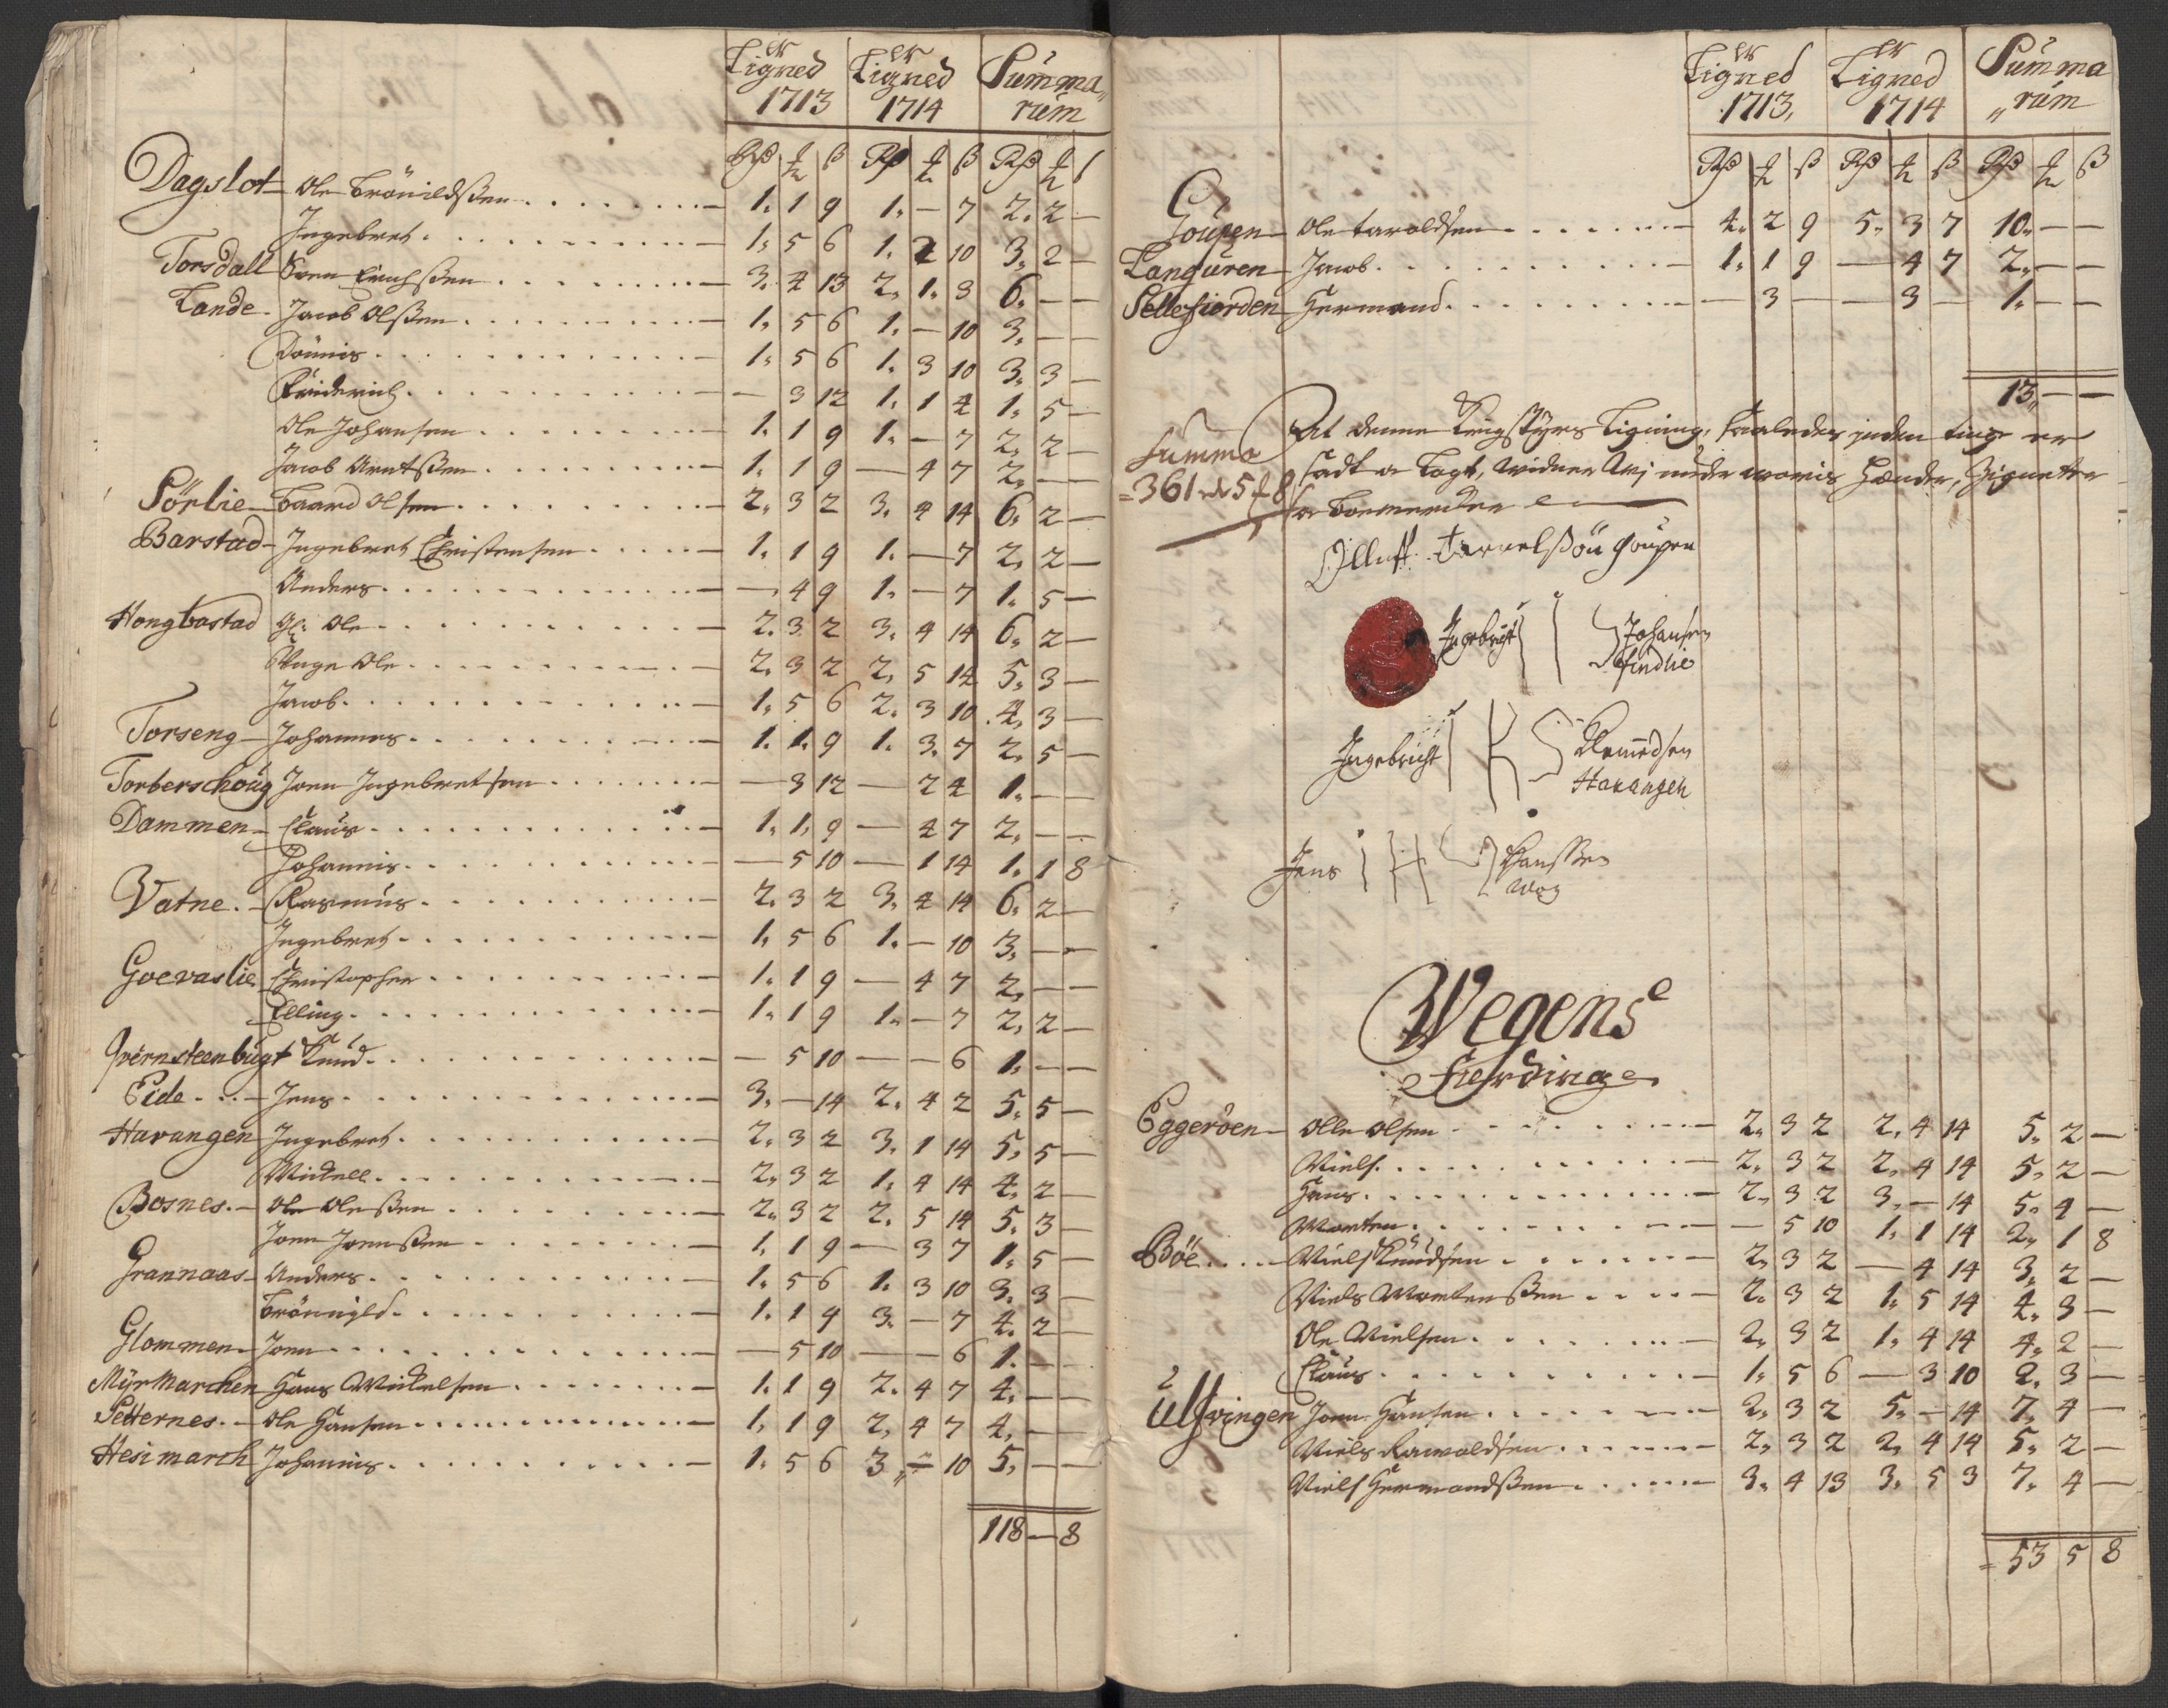 er er
Ligned Ligned Summa„
1713 1714 rum
Rß ₰ ß Rß ₰ ß Rß ₰ ß
Dagslot Ole Brönildßen 1. 1 9 1. — 7 2. 2 —
Ingebret 1. 5 6 1. 2 10 3. 2 —
Torsdall Sven Erichßen 3. 4 13 2. 1. 3 6. — —
Lande Jacob Olßen 1. 5 6 1. — 10 3. — —
Dönnis 1. 5 6 1. 3 10 3. 3 —
Friderich — 3 12 1. 1 4 1. 5 —
Ole Johansen 1. 1 9 1. — 7 2. 2 —
Jacob Arntßen 1. 1 9 — 4 7 2. — —
Sörlie Baard Olsen 2. 3 2 3. 4 14 6. 2 —
Barstad Ingebret Christensen 1. 1 9 1. — 7 2. 2 —
Anders — 4 9 1. — 7 1. 5 —
Hongbastad Gl: Ole 2. 3 2 3. 4 14 6. 2 —
Unge Ole 2. 3 2 2. 5 14 5. 3 —
Jacob 1. 5 6 2. 3 10 4. 3 —
Torseng Johannes 1. 1. 9 1. 3. 7 2. 5 —
Torberschoug Joen Ingebretsen — 3 12 — 2 4 1. — —
Dammen Claus 1. 1. 9 — 4 7 2. — —
Johannis — 5 10 — 1 14 1. 1 8
Vatne Rasmus 2. 3 2 3. 4 14 6. 2 —
Ingebret 1. 5 6 1. — 10 3. — —
Goevaslie Christopher 1. 1 9 — 4 7 2. — —
Elling 1. 1 9 1. — 7 2. 2 —
Qvernsteenbugt Knud — 5 10 — — 6 1. — —
Eide Jens 3. — 14 2. 4 2 5. 5 —
Havangen Ingebret 2. 3 2 3. 1 14 5. 5 —
Mickell 2. 3 2 1. 4 14 4. 2 —
Bosnes Ole Oleßen 2. 3 2 2. 5 14 5. 3 —
Joen Joenßen 1. 1 9 — 3 7 1. 5 —
Grannaas Anders 1. 5 6 1. 3 10 3. 3 —
Brönnild 1. 1 9 3. — 7 4. 2 —
Glommen Joen — 5 10 — — 6 1. — —
Myrmarchen Hans Mickelsen 1. 1 9 2. 4 7 4. — —
Setternes Ole Hansen 1. 1 9 2. 4 7 4. — —
Hesimarch Johannis 1. 5 6 3 „ — 10 5. — —
118 — 8
er er
Ligned Ligned Summa
1713. 1714 „rum
Rß ₰ ß Rß ₰ ß Rß ₰ ß
Goupen Ole taraldsen 4. 2 9 5. 3 7 10. — —
Languren Jacob 1. 1 9 — 4 7 2. — —
Sellefiorden Hermand — 3 — — 3 — 1. — —
13„ — —
At denne Krigstyrs Ligning, saaledes paa tinge er
Summa
sadt og Lagt, widner Wj under worris Hænder, Zignetter
= 361 rdr 5 ₰ 8
og Boemercker
Olluff tarrelßön goupen
Ingebrigt Johansen
findlie
Ingebricht Amundsen
Havangen
Jens Hanssen
wog
Wegens
Fierding
Eggeröen Olle Olsen 2. 3 2 2. 4 14 5. 2 —
Niels 2. 3 2 2. 4 14 5. 2 —
Hans 2. 3 2 3. — 14 5. 4 —
Morten — 5 10 1. 1 14 2. 1 8
Böe Niels Knudsen 2. 3 2 — 4 14 3. 2 —
Niels Mortenßen 2. 3 2 1. 5 14 4. 3 —
Ole Nielsen 2. 3 2 1. 4 14 4. 2 —
Claus 1. 5 6 — 3 10 2. 3 —
Ulfvingen Joen Hansen 2. 3 2 5. — 14 7. 4 —
Niels Rawaldsen 2. 3 2 2. 4 14 5. 2 —
Niels Hermandßen 3. 4 13 3. 5 3 7. 4 —
= 53 5 8